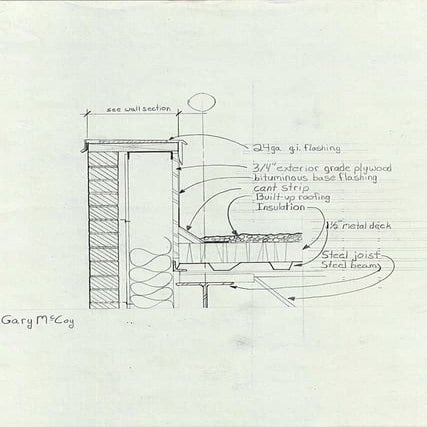 see wall section
24ga g.i. flashing
3/4" exterior grade plywood
bituminous base flashing
cant strip
Built-up roofing
Insulation
1½" metal deck
Steel joist
Steel beam
Gary McCoy